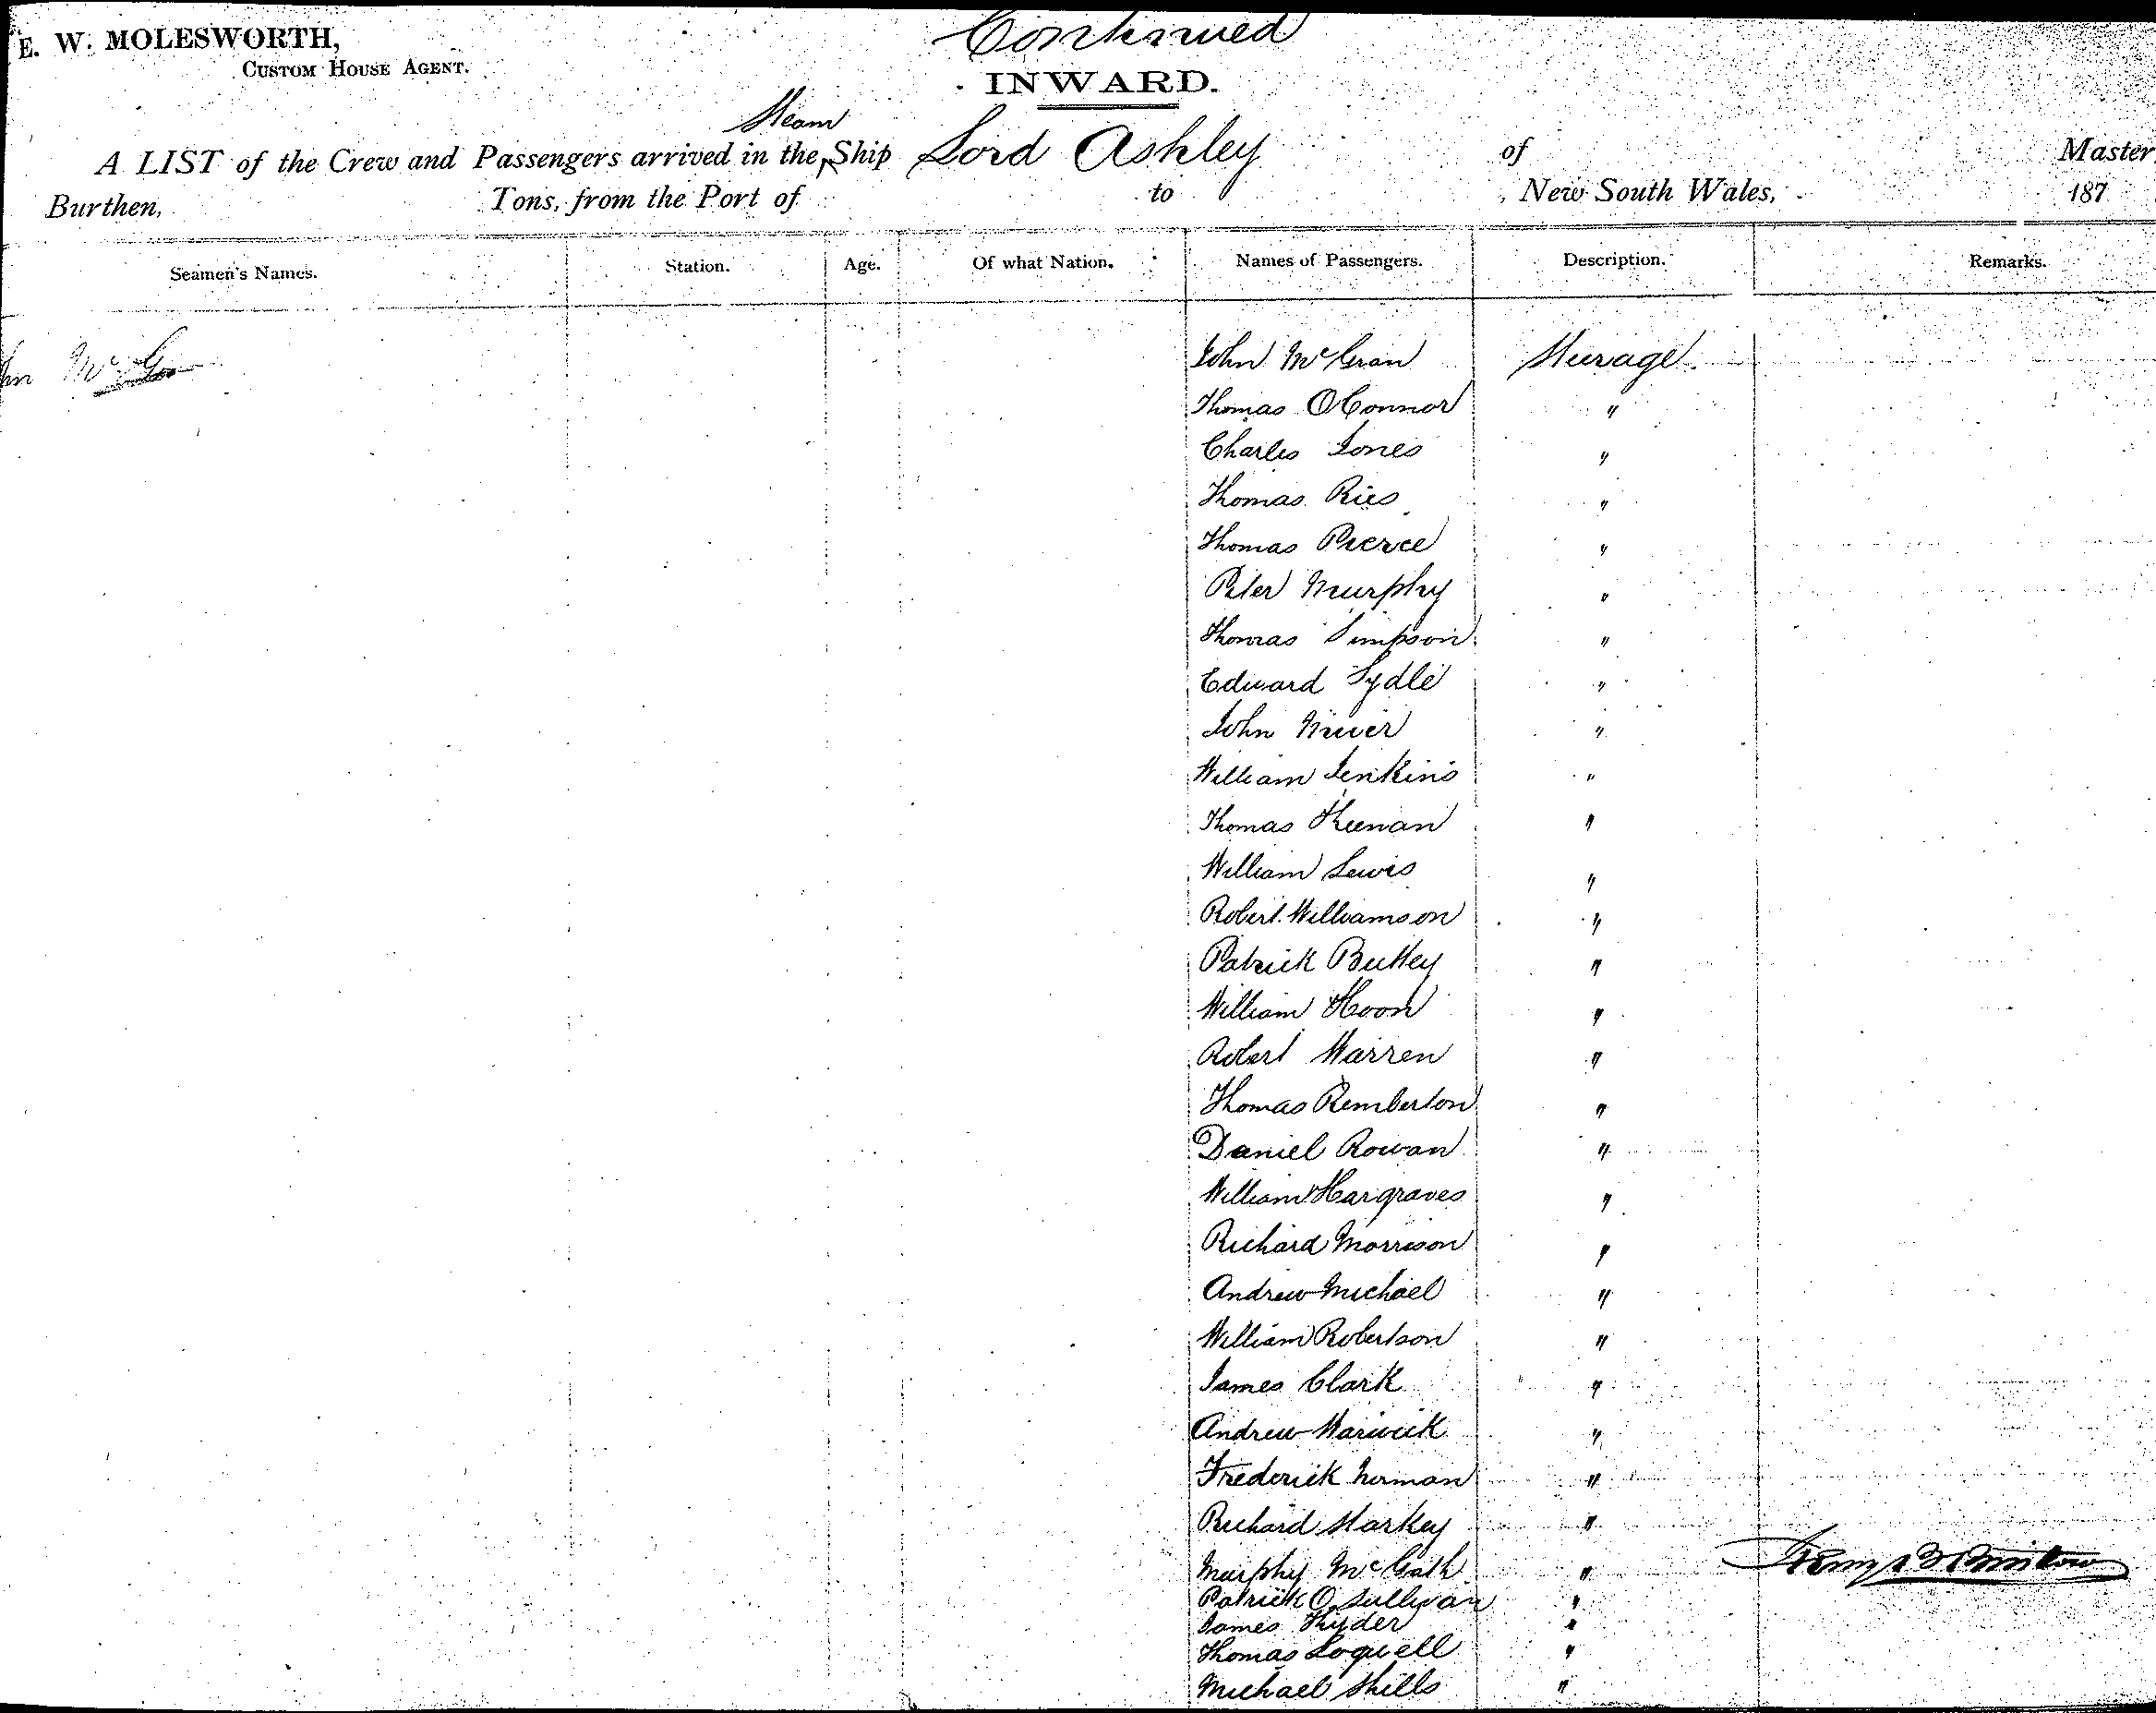 Continued
E. W. MOLESWORTH,
CUSTOM HOUSE AGENT.
INWARD.
Steam
A LIST of the Crew and Passengers arrived in the Ship Lord Ashley of Master
Burthen, Tons, from the Port of to , New South Wales, 187
Seamen's Names. Station. Age. Of what Nation. Names of Passengers. Description. Remarks.
John McGran Steerage
Thomas OConnor "
Charles Jones "
Thomas Ries "
Thomas Pierce "
Peter Murphy "
Thomas Simpson "
Edward Lydle "
John "
William Jenkins "
Thomas Keenan "
William Lewis "
Robert Williamson "
Patrick "
William Hoon "
Robert Warren "
Thomas Pemberton "
Daniel Rowan "
William Hargraves "
Richard Morrison "
Andrew Michael "
William Robertson "
James Clark "
Andrew Warwick "
Frederick "
Richard Starkey "
Murphy McGath "
Patrick O Sullivan "
James "
Thomas Loquell "
Michael "